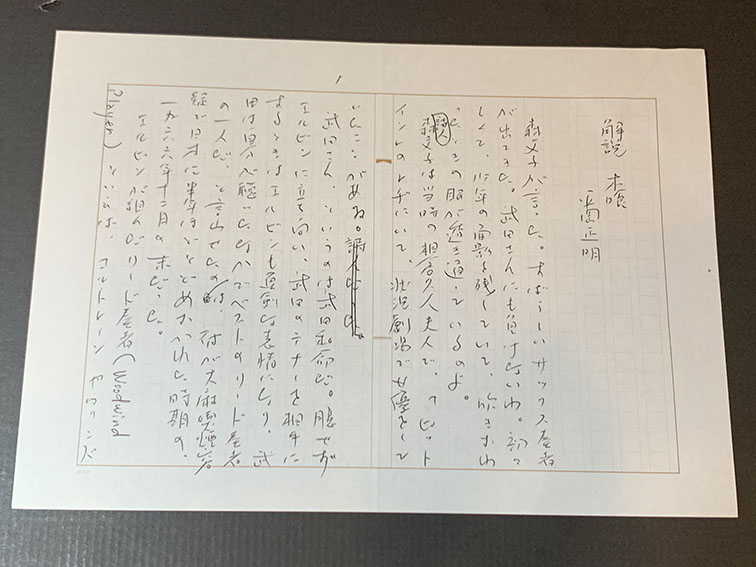 解説 木喰
平岡正明
森文子が言った。すばらしいサックス奏者
が出てきた。武田さんにも負けないわ。初々
しくて、少年の面影を残していて、吹きおわ
ると、きの眼が透き通っているのよ。
詩人
森文子は当時の相倉久人夫人で、『ピット
インのレヂにいて、状況劇場で女優をして
いたことがある。
武田さん、というのは武田和命だ。臆せず
エルビンに立ち向い、武田のテナーを相手に
するときはエルビンも真剣な表情になり、武
田は自分が組ったなかでベストのリード奏者
の一人だ、と言わせたのは、
証で日本に半年ほどとどめおかれた時期の、
一九六六年十二月の末だった。
エルビンが組んだリード奏者(Woodwind
Player)といえば、コルトレーン やロリンズ
1